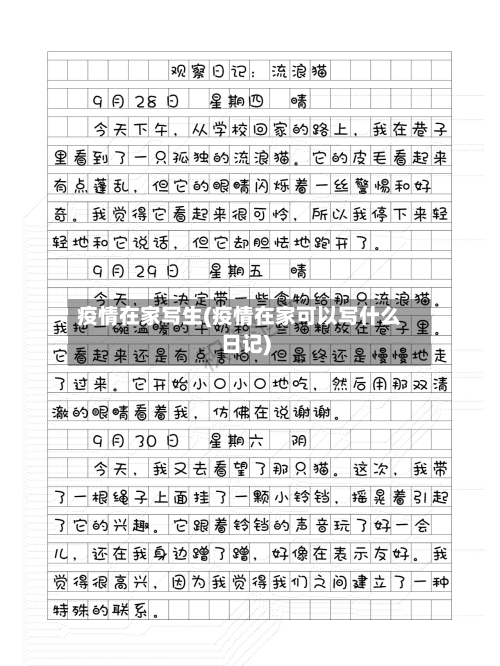 观察日记：流浪猫
9月28日 星期四 晴
今天下午，从学校回家的路上，我在巷子
里看到了一只孤独的流浪猫。它的皮毛看起来
有点蓬乱，但它的眼睛闪烁着一丝警惕和好
奇。我觉得它看起来很可怜，所以我停下来轻
轻地和它说话，但它却胆怯地跑开了。
9月29日 星期五 晴
今天，我决定带一些食物给那只流浪猫。
疫情在家写生(疫情在家可以写什么
日记)
我把一碗温暖的牛奶和一些猫粮放在巷子里。
它看起来还是有点害怕，但最终还是慢慢地走
了过来。它开始小口小口地吃，然后用那双清
澈的眼睛看着我，仿佛在说谢谢。
9月30日 星期六 阴
今天，我又去看望了那只猫。这次，我带
了一根绳子上面挂了一颗小铃铛，摇晃着引起
了它的兴趣。它跟着铃铛的声音玩了好一会
儿，还在我身边蹭了蹭，好像在表示友好。我
觉得很高兴，因为我觉得我们之间建立了一种
特殊的联系。